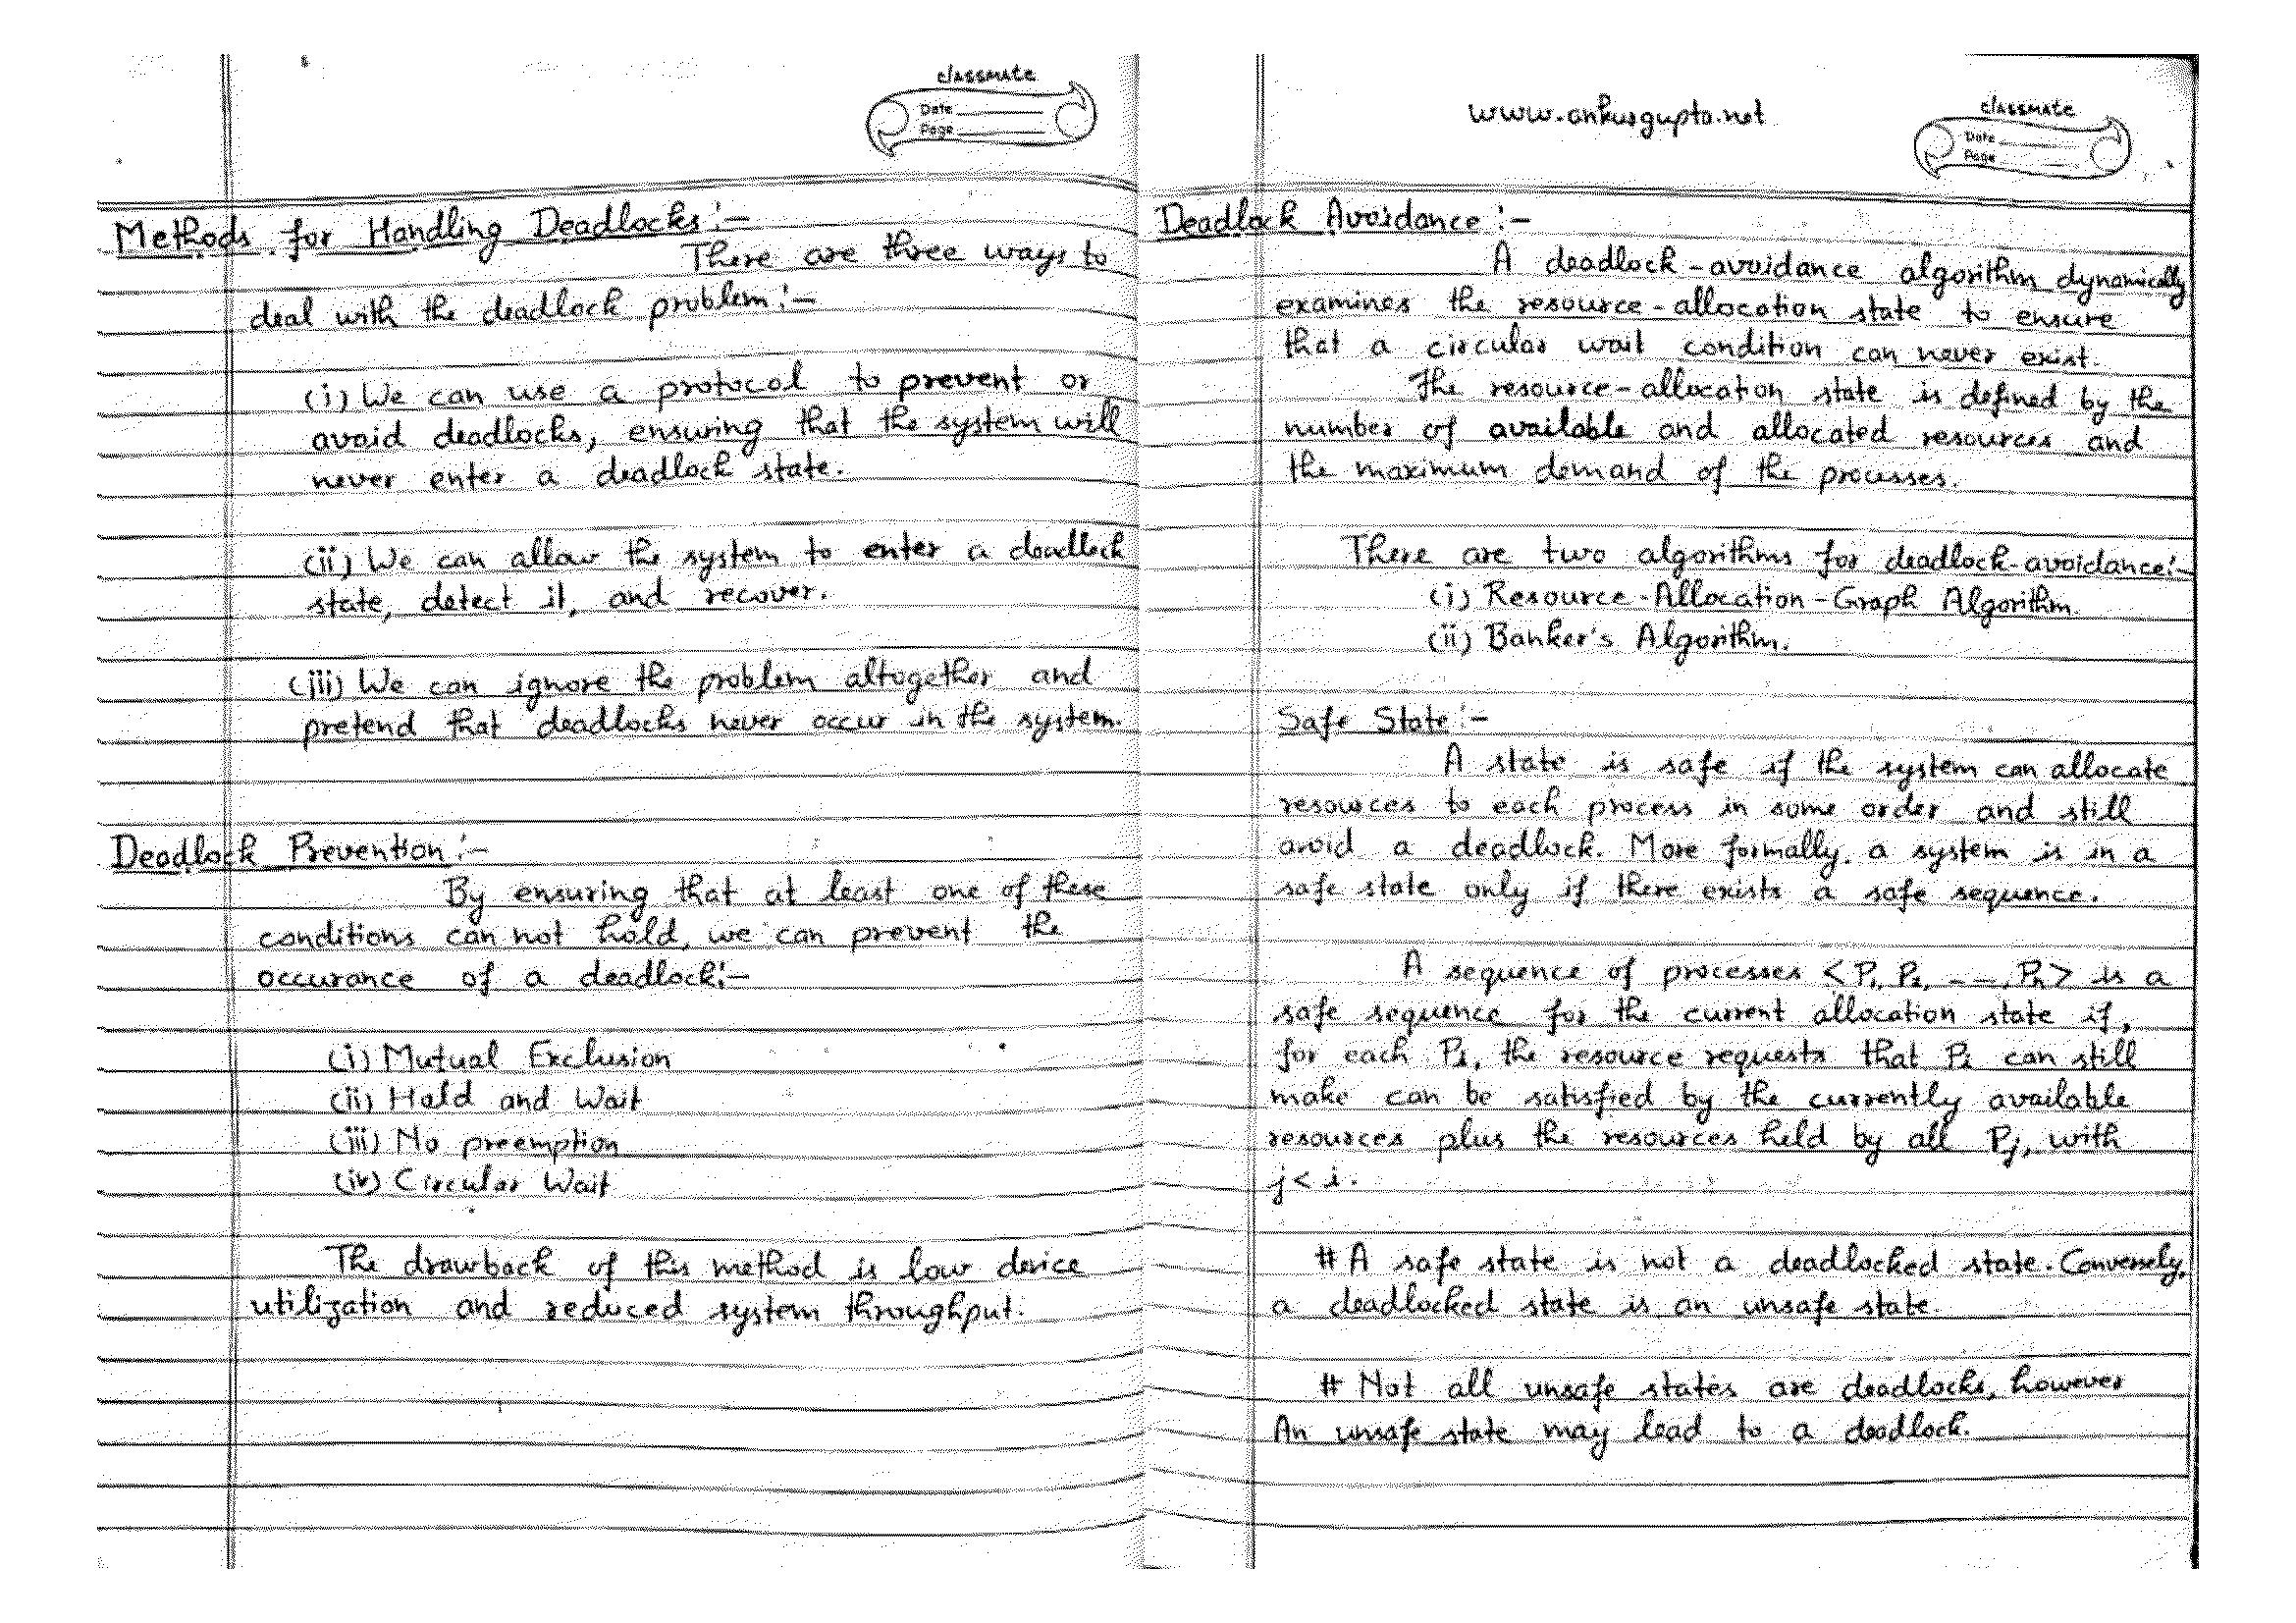 classmate
Date
Page
Methods for Handling Deadlocks:-
There are three ways to
deal with the deadlock problem:-
(i) We can use a protocol to prevent or
avoid deadlocks, ensuring that the system will
never enter a deadlock state.
(ii) We can allow the system to enter a deadlock
state, detect it, and recover.
(iii) We can ignore the problem altogether and
pretend that deadlocks never occur in the system.
Deadlock Prevention:-
By ensuring that at least one of these
conditions can not hold, we can prevent the
occurance of a deadlock:-
(i) Mutual Exclusion
(ii) Hold and Wait
(iii) No preemption
(iv) Circular Wait
The drawback of this method is low device
utilization and reduced system throughput.
www.ankurgupta.net
classmate
Date
Page
Deadlock Avoidance:-
A deadlock-avoidance algorithm dynamically
examines the resource-allocation state to ensure
that a circular wait condition can never exist.
The resource-allocation state is defined by the
number of available and allocated resources and
the maximum demand of the processes.
There are two algorithms for deadlock-avoidance:-
(i) Resource-Allocation-Graph Algorithm.
(ii) Banker's Algorithm.
Safe State:-
A state is safe if the system can allocate
resources to each process in some order and still
avoid a deadlock. More formally, a system is in a
safe state only if there exists a safe sequence.
A sequence of processes <P1, P2, ---, Pn> is a
safe sequence for the current allocation state if,
for each Pi, the resource requests that Pi can still
make can be satisfied by the currently available
resources plus the resources held by all Pj, with
j < i.
# A safe state is not a deadlocked state. Conversely,
a deadlocked state is an unsafe state.
# Not all unsafe states are deadlocks, however
An unsafe state may lead to a deadlock.